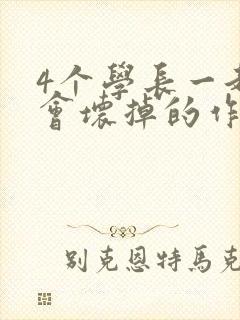 4个學長一
會壞掉的作
别克恩特馬克